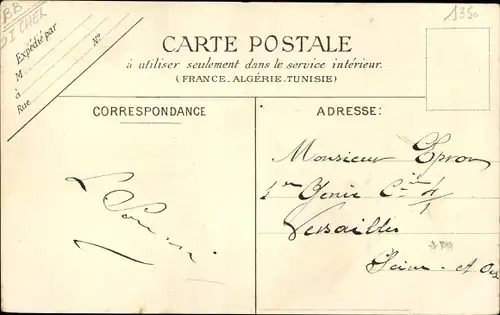 BB
1350
Expédié par
M
à
Rue
N°
CARTE POSTALE
à utiliser seulement dans le service intérieur.
(FRANCE-ALGÉRIE-TUNISIE)
CORRESPONDANCE
ADRESSE:
Monsieur Epron
Génie
Versailles
Seine-et-Oise